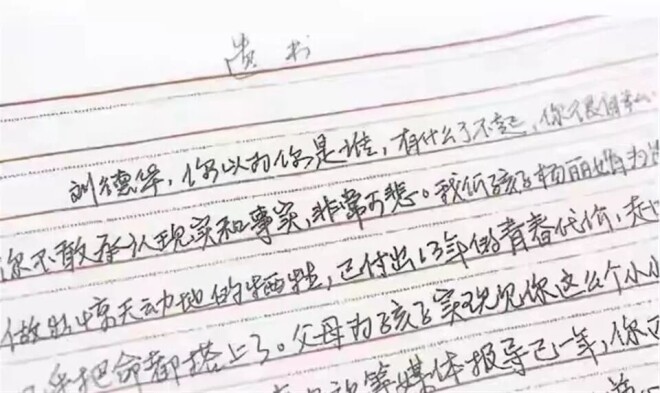 遗书
刘德华,你以为你是谁,有什么了不起,你很自私
你不敢承认现实和事实,非常可悲。我低孩子杨丽娟为
做出惊天动地的牺牲,已付出13年的青春代价,走
把命都搭上了。父母为孩子实现见你这么个小小
等媒体报导已一年,你